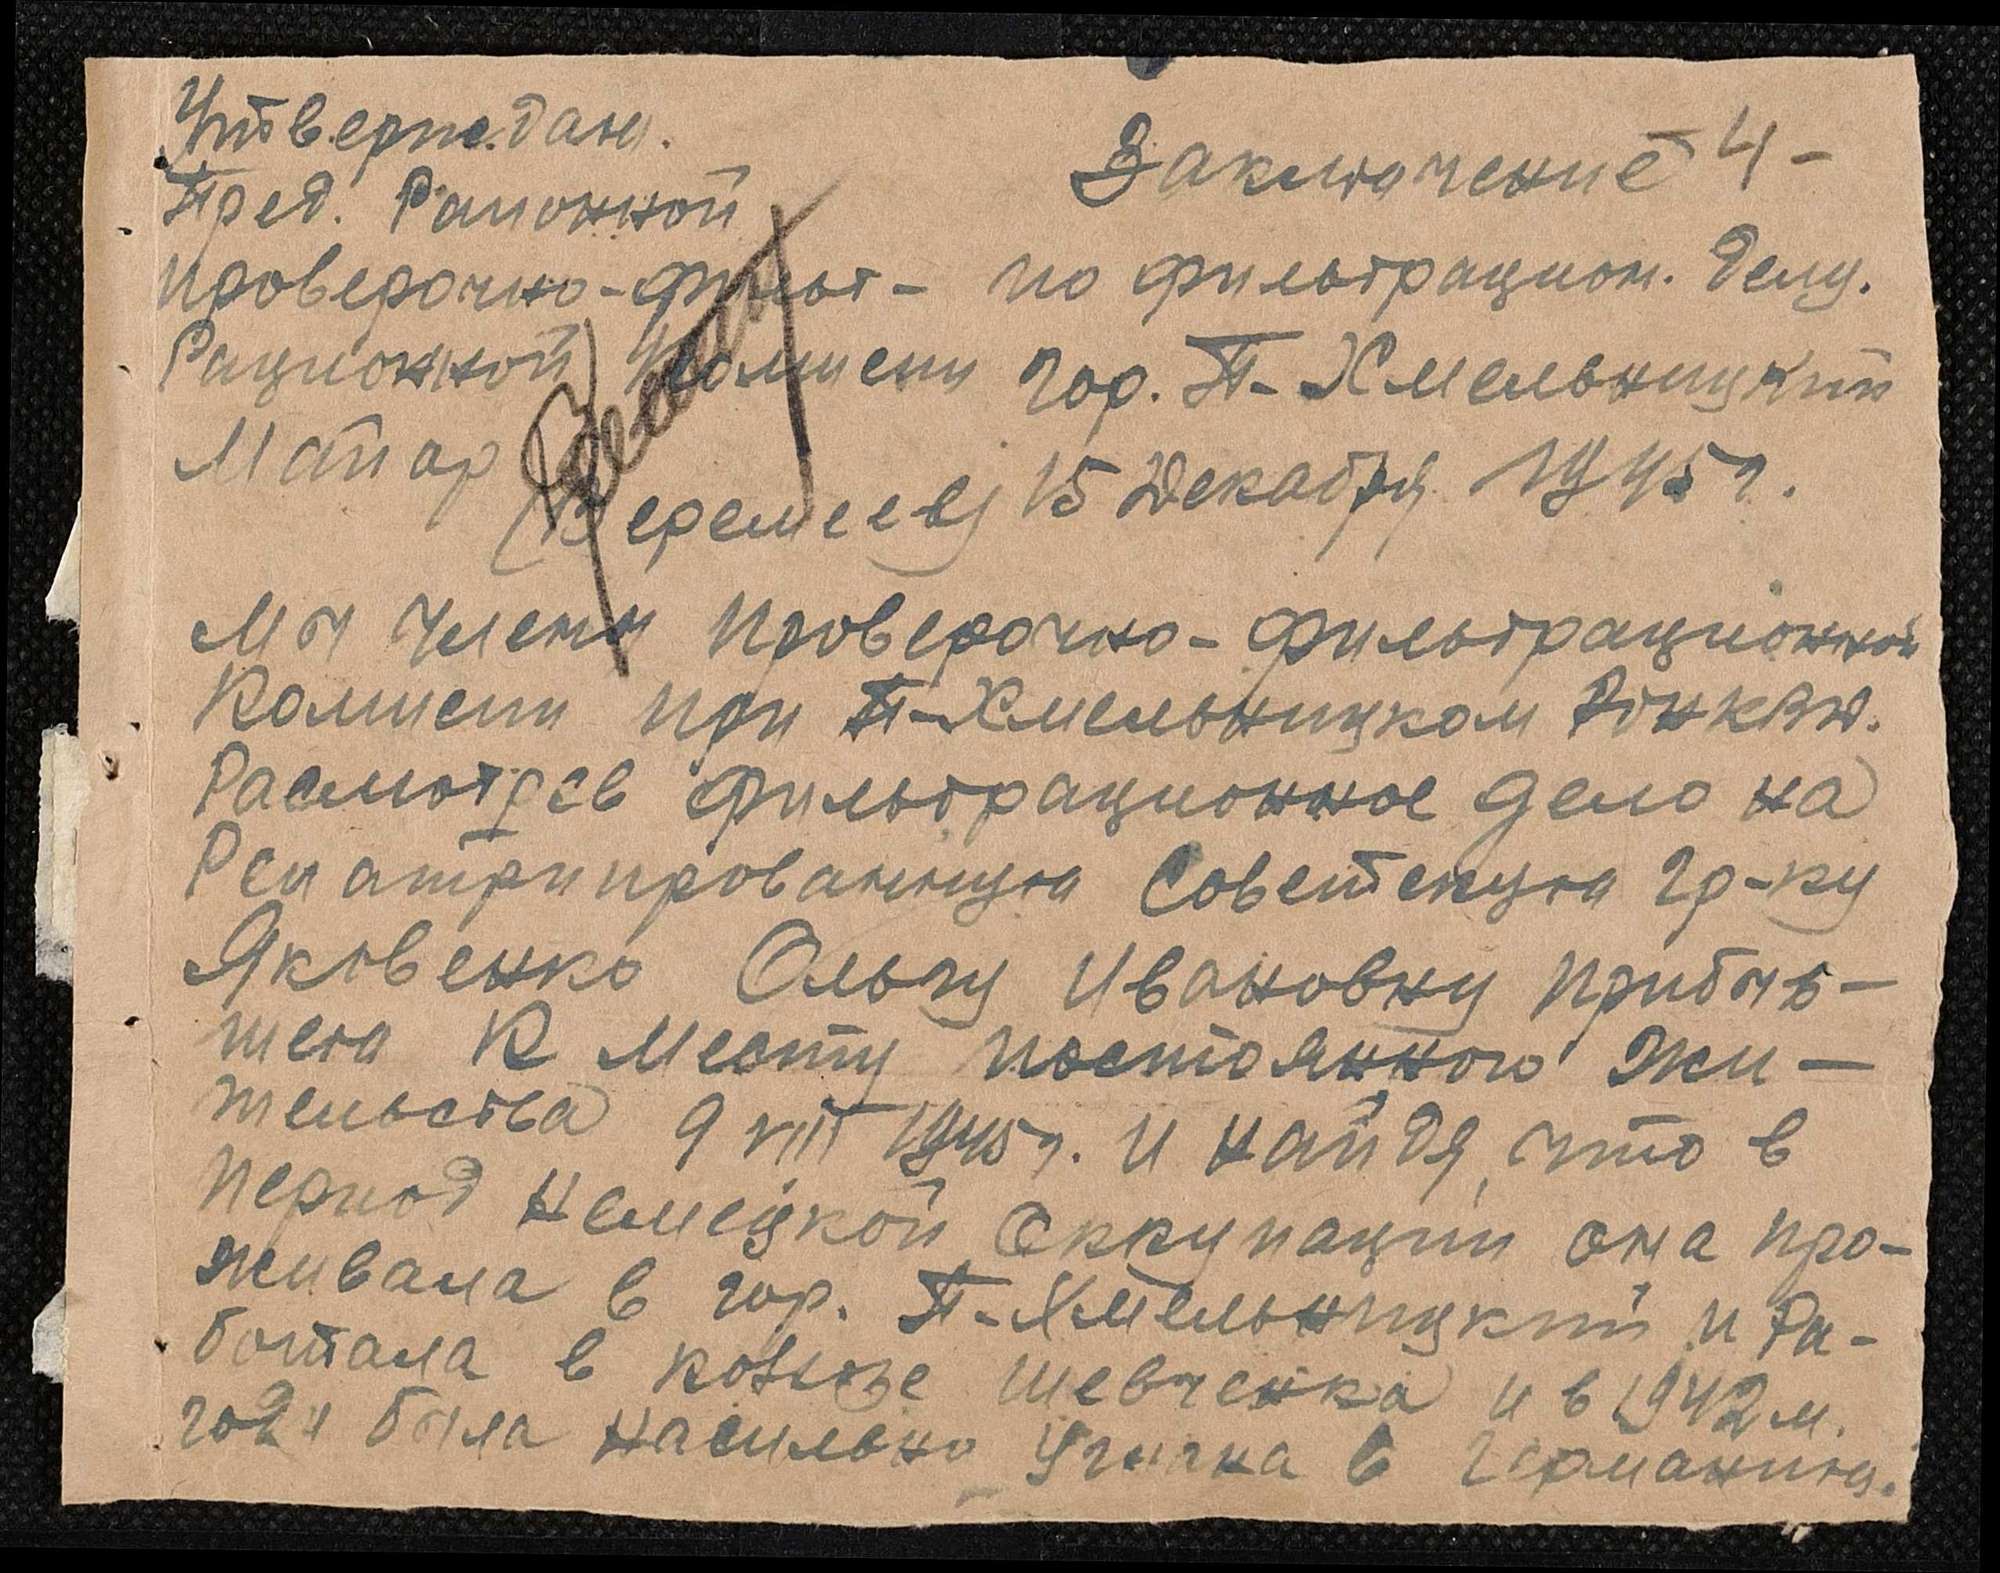 Утверждаю.
Пред. Районной
проверочно-фильт-
рационной Комисии
Майор
(Веремеев)
Заключение 4-
по фильтрацион. делу.
гор. П-Хмельницкий
15 Декабря 1945 г.
Мы члены проверочно-фильтрационной
Комисии при П-Хмельницком РОНКВД.
Расмотрев фильтрационное дело на
Репатриированную Советскую гр-ку
Яковенко Ольгу Ивановну прибыв-
шею К месту постоянного жи-
тельства 9 VIII 1945 г. и найдя, что в
период немецкой оккупации она про-
живала в гор. П-Хмельницкий и Ра-
ботала в колхозе Шевченка и в 1942 м.
году была насильно угнана в Германию.